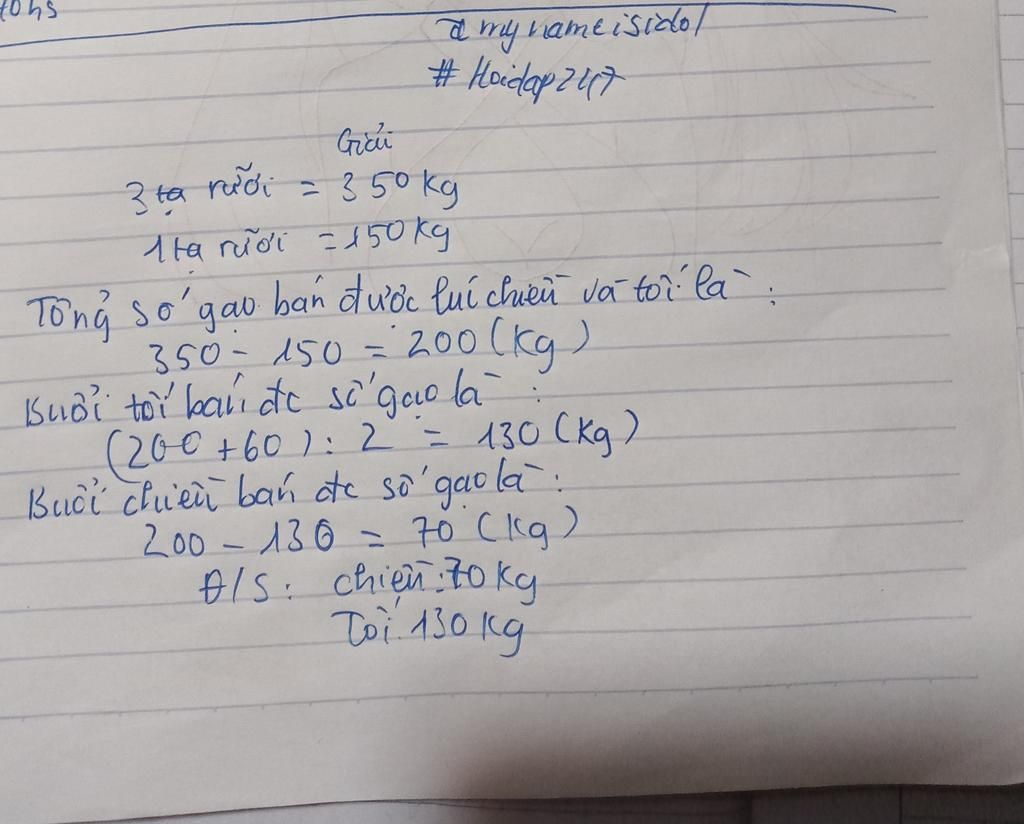 tohs
@mynameisidol
# Hoidap247
Giải
3 tạ rưỡi = 350 kg
1 tạ rưỡi = 150 kg
Tổng số gạo bán được lúc chiều và tối là :
350 - 150 = 200 (kg)
Buổi tối bán đc số gạo là :
(200 + 60) : 2 = 130 (kg)
Buổi chiều bán đc số gạo là :
200 - 130 = 70 (kg)
Đ/S : chiều : 70 kg
Tối : 130 kg